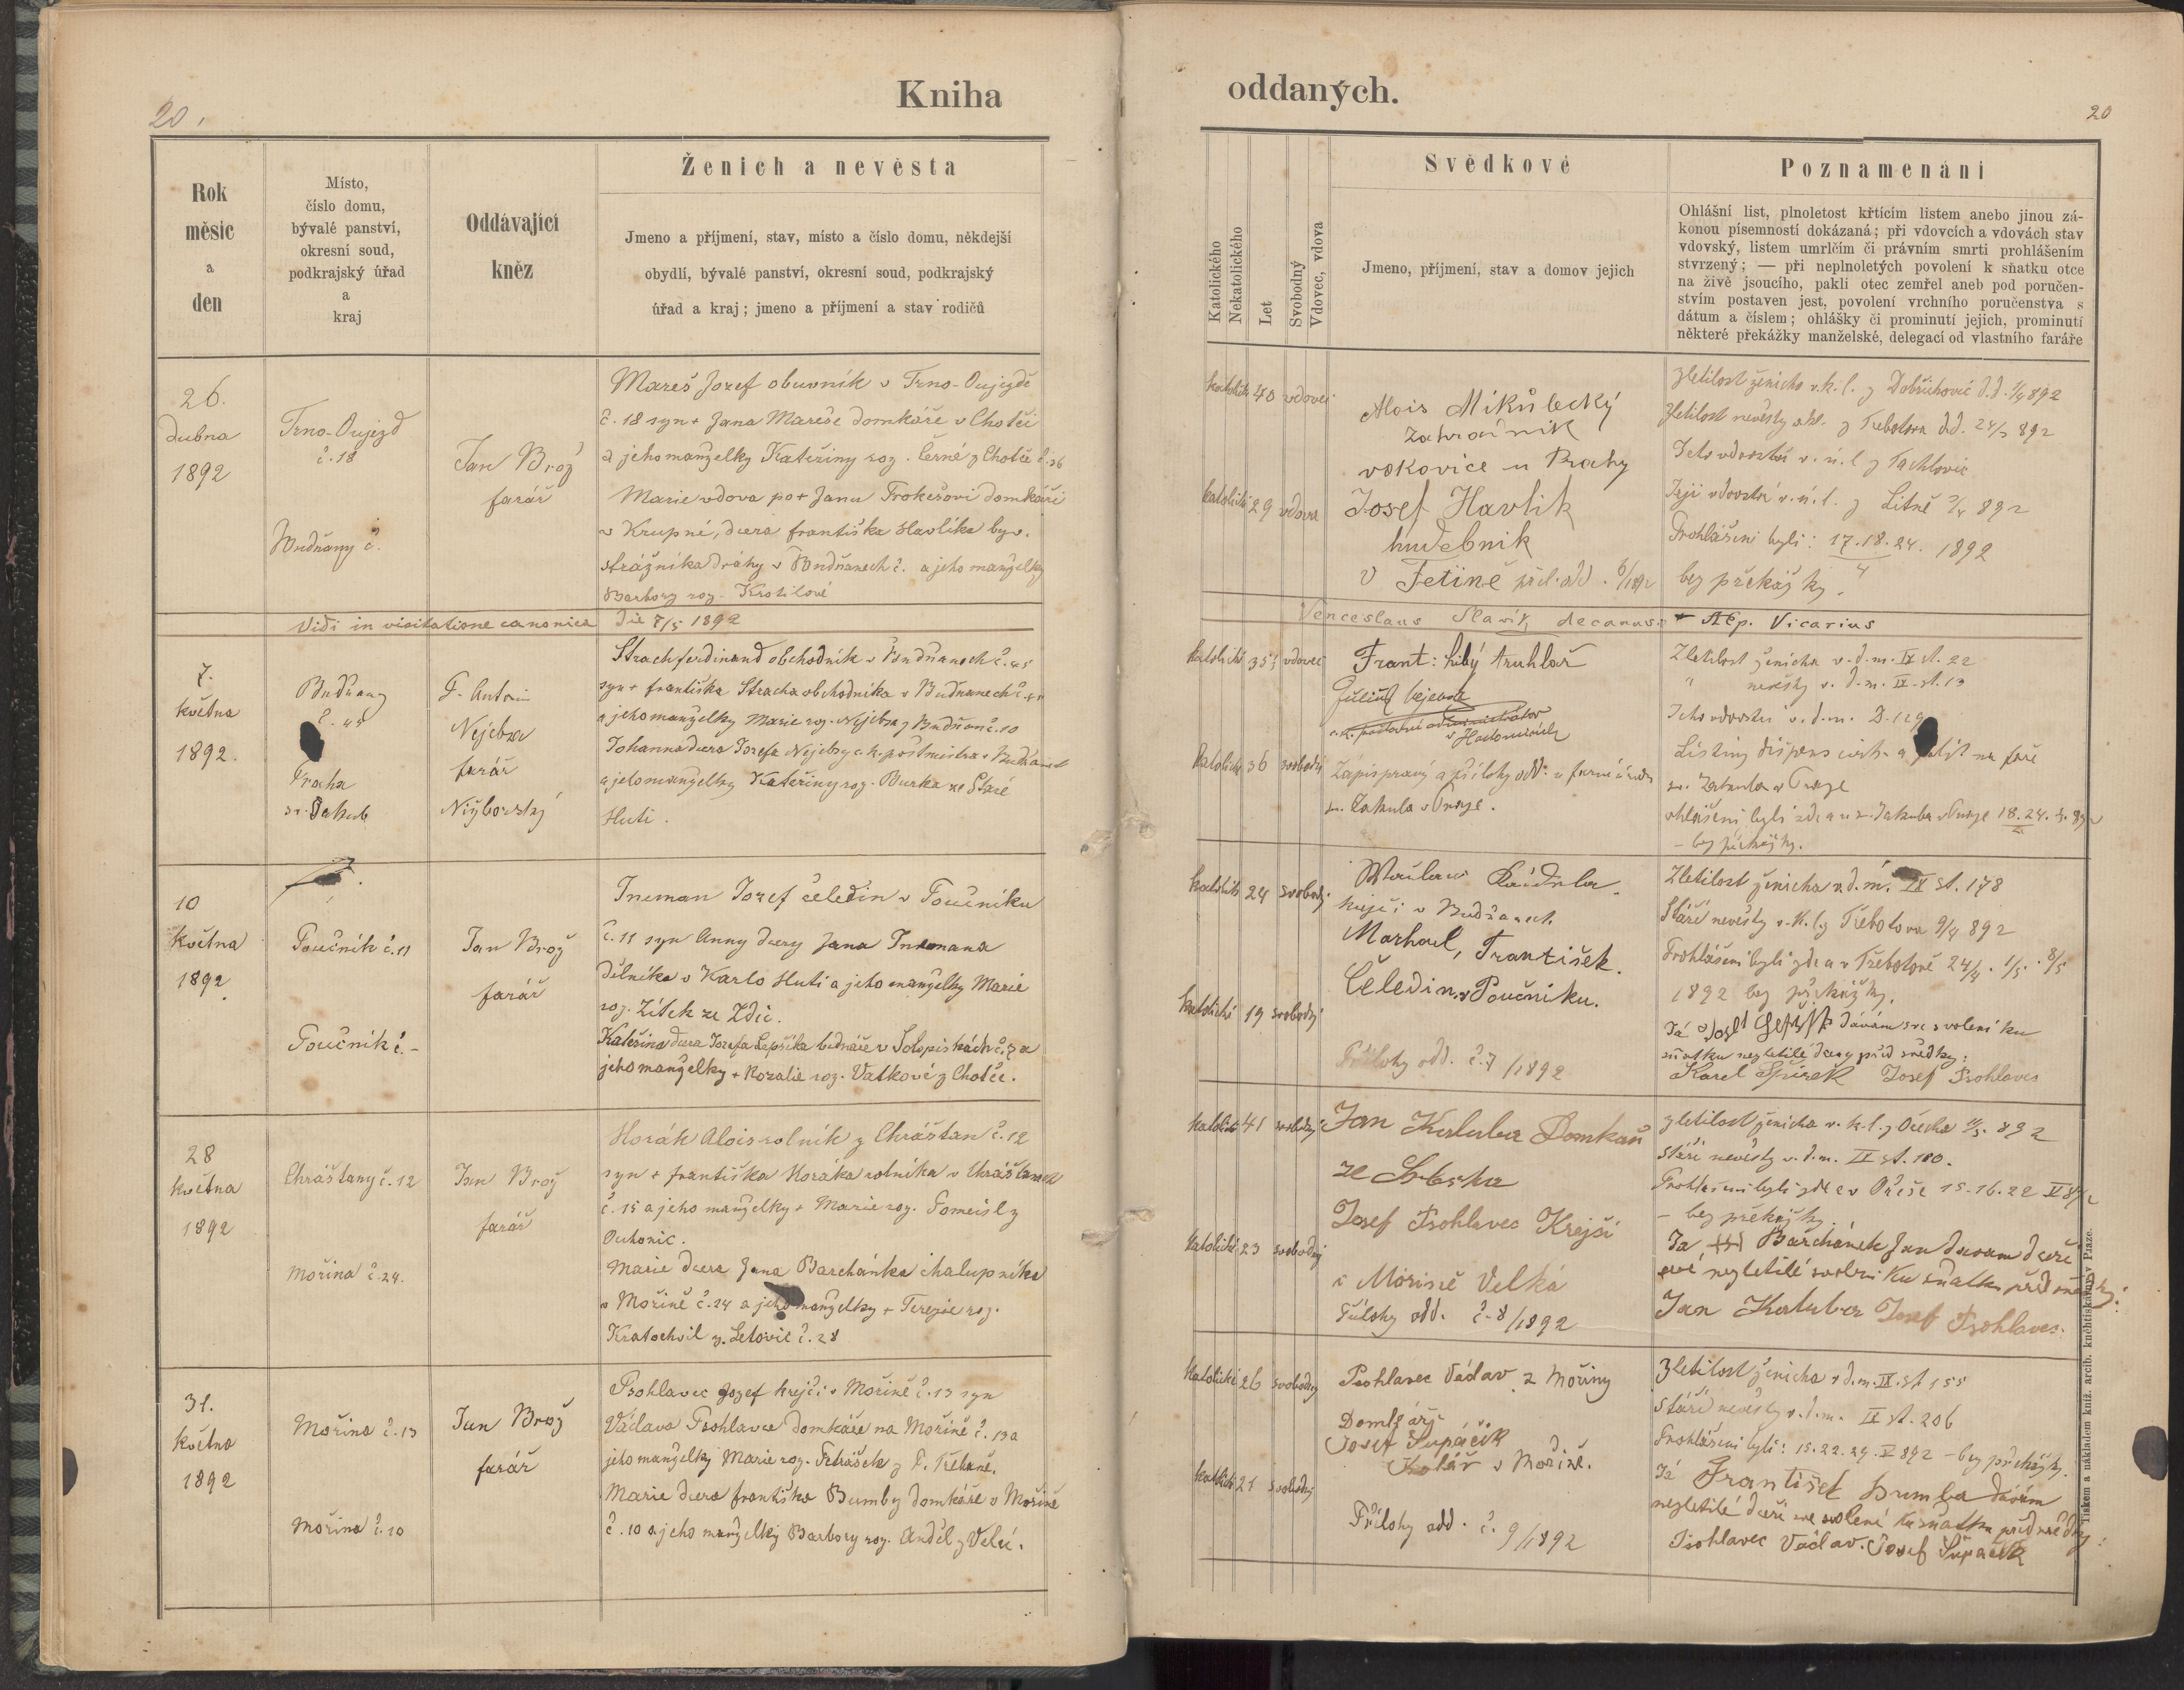 20.
Kniha
Rok
měsíc
a
den
Místo,
číslo domu,
bývalé panství,
okresní soud,
podkrajský úřad
a
kraj
Oddávající
kněz
Ženich a nevěsta
Jmeno a příjmení, stav, místo a číslo domu, někdejší
obydlí, bývalé panství, okresní soud, podkrajský
úřad a kraj; jmeno a příjmení a stav rodičů
26.
dubna
1892
Trno-Oujezd
č. 18
Budňany č.
Jan Brož
farář
Mareš Josef obuvník v Trno-Oujezdě
č. 18 syn + Jana Mareše domkáře v Chotči
a jeho manželky Kateřiny roz. Černé z Chotče č. 26
Marie vdova po + Janu Frokešovi domkáři
v Krupné, dcera Františka Havlíka býv.
strážníka dráhy v Budňanech č. a jeho manželky
Barbory roz. Krotilové
Vidi in visitatione canonica die 7/5 1892
7.
května
1892.
Budňany
č. 45
Praha
sv. Jakub
P. Antonín
Nejebsa
farář
Nižborský
Strach Ferdinand obchodník v Budňanech č. 45
syn + Františka Stracha obchodníka v Budňanech č. 45
a jeho manželky Marie roz. Nejebsa z Budňan č. 10
Johanna dcera Josefa Nejebsy c. k. poštmistra v Budňanech
a jeho manželky Kateřiny roz. Burka ze Staré
Huti.
10
května
1892
Poučník č. 11
Poučník č. -
Jan Brož
farář
Inneman Josef čeledín v Poučníku
č. 11 syn Anny dcery Jana Innemana
dělníka v Karlo Huti a jeho manželky Marie
roz. Zítek ze Zdic.
Kateřina dcera Josefa Lepšíka bednáře v Solopiskách č. 7 a
jeho manželky + Rozalie roz. Vatkové z Chotče.
28
května
1892
Chrášťany č. 12
Mořina č. 24.
Jan Brož
farář
Horák Alois rolník z Chrášťan č. 12
syn + Františka Horáka rolníka v Chrášťanech
č. 15 a jeho manželky + Marie roz. Pomeisl z
Duhonic.
Marie dcera Jana Barchánka chalupníka
v Mořině č. 24 a jeho manželky + Terezie roz.
Kratochvil z Letovic č. 28
31.
května
1892
Mořina č. 13
Mořina č. 10
Jan Brož
farář
Psohlavec Josef krejčí v Mořině č. 13 syn
Václava Psohlavce domkáře na Mořině č. 13 a
jeho manželky Marie roz. Petrášek z P. Třebaně.
Marie dcera Františka Bumby domkáře v Mořině
č. 10 a jeho manželky Barbory roz. Anděl z Velkú.
oddaných.
20
Katolického
Nekatolického
Let
Svobodný
Vdovec, vdova
Svědkové
Jmeno, příjmení, stav a domov jejich
Poznamenání
Ohlášní list, plnoletost křtícím listem anebo jinou zá-
konou písemností dokázaná; při vdovcích a vdovách stav
vdovský, listem umrlčím či právním smrti prohlášením
stvrzený; — při neplnoletých povolení k sňatku otce
na živě jsoucího, paklí otec zemřel aneb pod poručen-
stvím postaven jest, povolení vrchního poručenstva s
dátum a číslem; ohlášky či prominutí jejich, prominutí
některé překážky manželské, delegací od vlastního faráře
katolík 40 vdovec
katolička 29 vdova
Alois Mikůlecký
zahradník
vokovice u Prahy
Josef Havlik
hudebnik
v Tetině příl. odd. 6/1892
Zletilost ženicha v. k. l. z Dobřichovic d.d. 1/4 892
Zletilost nevěsty okl. z Třebotova d.d. 24/3 892
Jeho vdovství v. ú. l. z Tachlovic
Její vdovství v. ú. l. z Litně 892
Prohlášeni byli: 17. 18. 24. 1892
4
bez překážky.
Venceslaus Slavík decanus Aep. Vicarius
Katolické 35 1/2 vdovec
Katolické 36 svobodný
Frant: Libý truhlař
Julius Vejevoda
c. k. poštovní administrátor
v Hostomicích
Zápis pravý a přílohy odd. u farní úřadu
sv. Jakuba v Praze.
Zletilost ženicha v. d. m. IX st. 22
" nevěsty v. d. m. IX. st. 13
Jeho vdovství v. d. m. D. 129
Listiny dispens na faře
sv. Jakuba v Praze
ohlášeni byli zde a u sv. Jakuba v Praze 18. 24.
- bez překážky.
katolík 24 svobodný
katolické 19 svobodný
krejčí v Budňanech
Marhoul, František.
Čeledín v Poučníku.
Přílohy odd. č. 7/1892
Zletilost ženicha v. d. m. IX st. 178
Stáří nevěsty v. k. l. z Třebotova 9/4 892
Prohlášeni byli zde a v Třebotově 24/4. 1/5. 8/5
1892 bez překážky.
Já Josef Lepšík dávám své svolení ku
sňatku nezletilé dcery před svědky:
Karel Špirek Josef Psohlavec
katolické 41 svobodný
katolické 23 svobodný
Jan Kaluba Domkař
ze Srbska
Josef Psohlavec Krejší
v Mořině Velká
Přílohy odd. č. 8/1892
Zletilost ženicha v. k. l. z Ořecha 892
Stáří nevěsty v. d. m. IX st. 180.
Prohlášeni byli zde a v Ořeše 15. 16. 22 V 892
- bez překážky.
Já, Barchánek Jan davám dceři
své nezletilé svolení ku sňatku před svědky:
Jan Kaluba Josef Psohlavec.
Katolické 26 svobodný
katolické 21 svobodný
Psohlavec Václav z Mořiny
Domkář
Josef Šupáčik
Kolář v Mořině.
Přílohy odd. č. 9/1892
Zletilost ženicha v d. m. IX. st. 155
Stáří nevěsty v. d. m. IX st. 206
Prohlášeni byli: 15. 22. 29. V 892 - bez překážky.
Já František Bumba dávám
nezletilé dceři své svolení ku sňatku před svědky:
Psohlavec Václav. Josef Šupáčik
Tiskem a nákladem kníž. arcib. knihtiskárny v Praze.